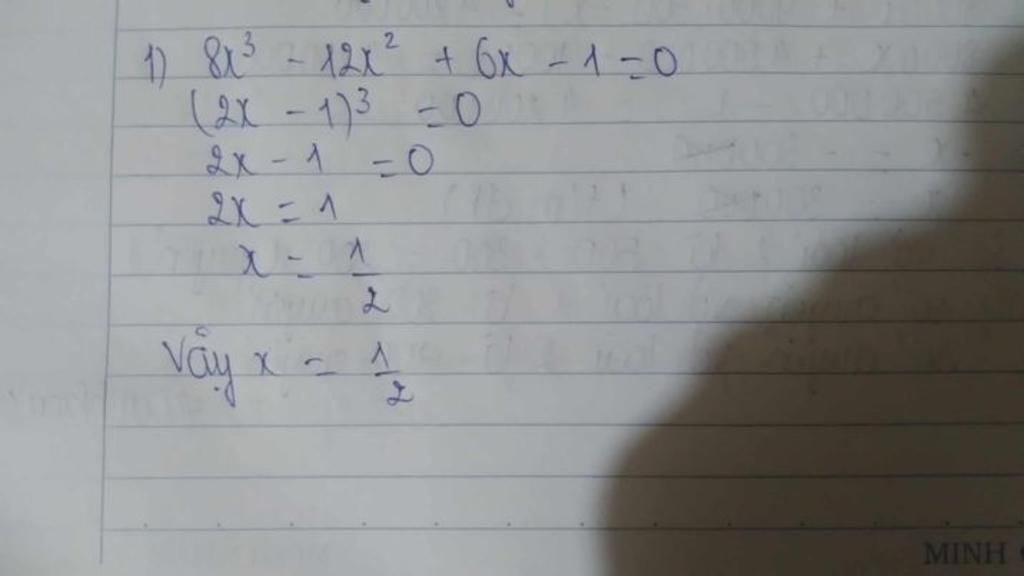 1) 8x³ - 12x² + 6x - 1 = 0
(2x - 1)³ = 0
2x - 1 = 0
2x = 1
x = 1/2
Vậy x = 1/2
MINH